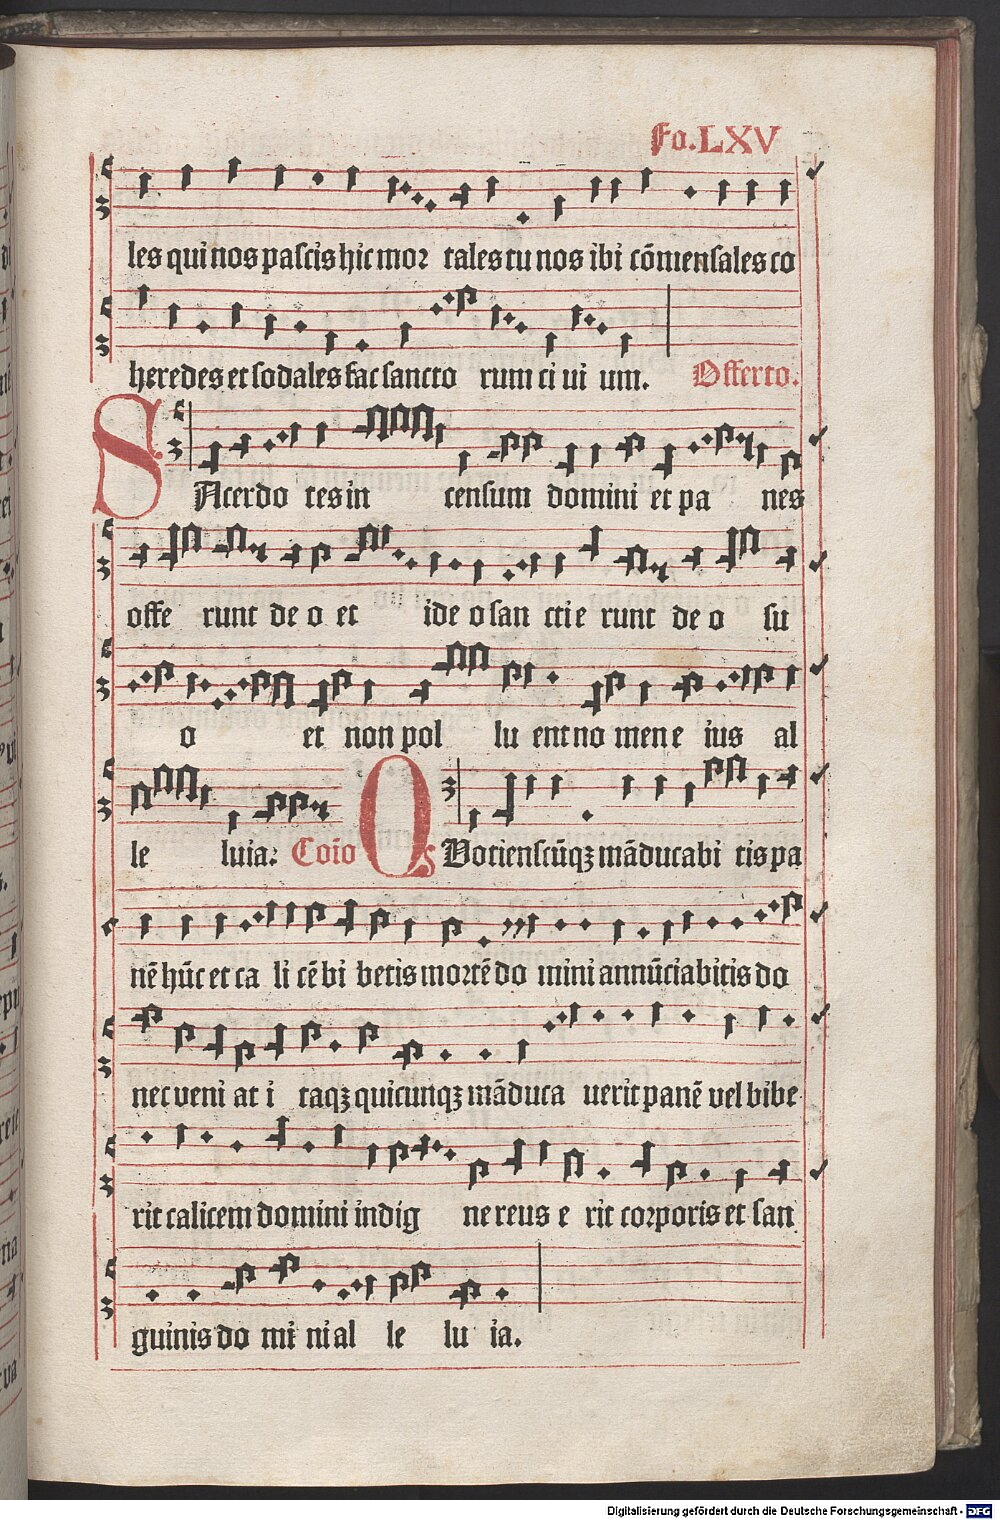 Fo.LXV
les qui nos pascis hic mor tales tu nos ibi cōmensales co
heredes et sodales fac sancto rum ci ui um. Offerto.
SAcerdo tes in censum domini et pa nes
offe runt de o et ide o san cti e runt de o su
o et non pol lu ent no men e ius al
le luia: Coīo QVotienscūqꝫ māducabi tis pa
nē hūc et ca li cē bi betis mortē do mini annūciabitis do
nec veni at i taqꝫ quicunqꝫ māduca uerit panē vel bibe
rit calicem domini indig ne reus e rit corporis et san
guinis do mi ni al le lu ia.
Digitalisierung gefördert durch die Deutsche Forschungsgemeinschaft - DFG